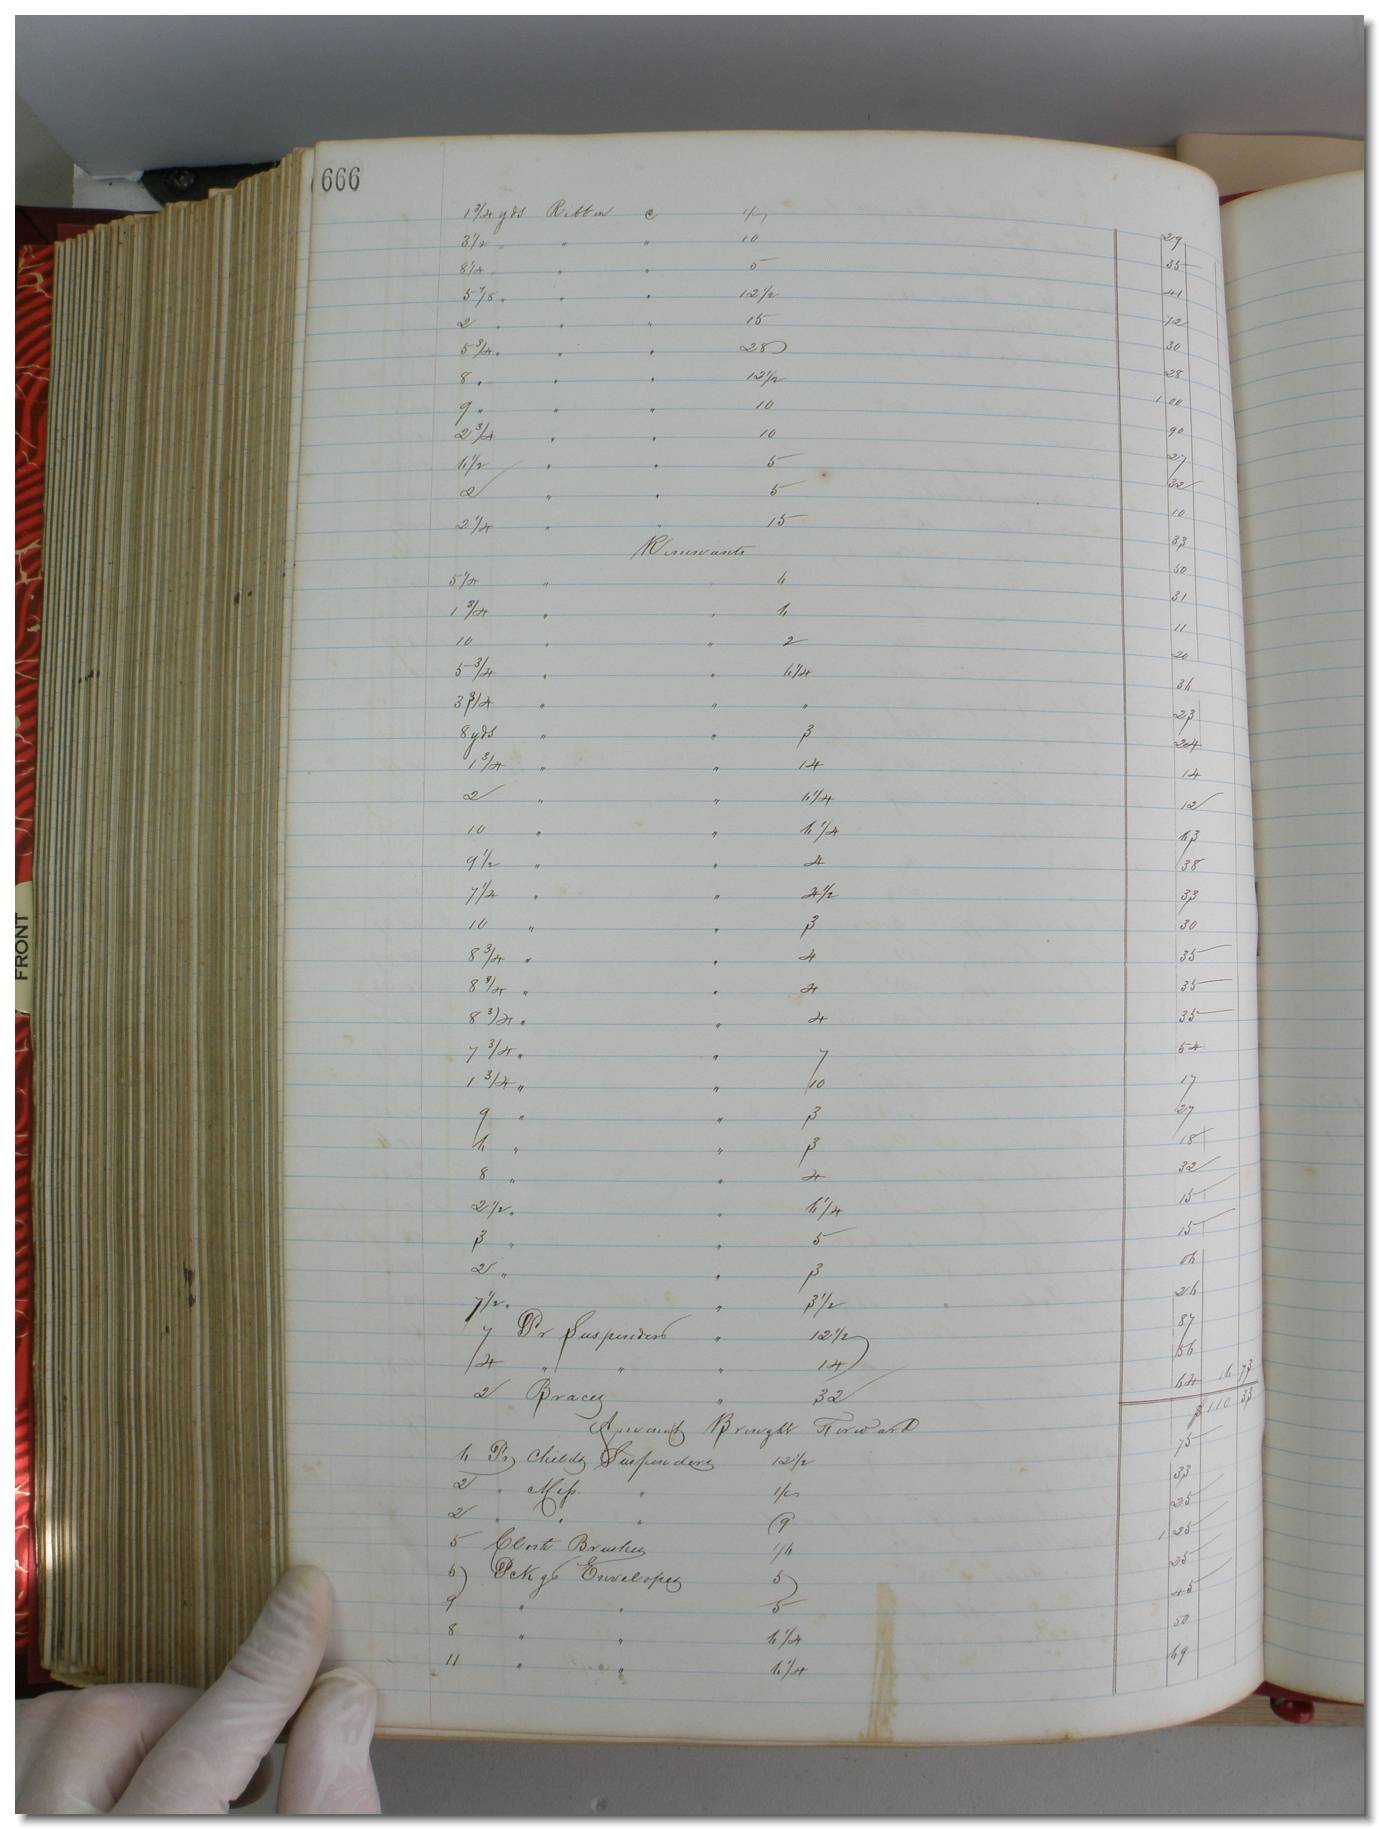 666
1 3/4 yds Ribbon c 1/6 29
3 1/2 " " " 10 35
8 1/4 " " " 5 41
5 7/8 " " " 12 1/2 72
2 " " " 15 30
5 3/4 " " " 28
8 " " " 12 1/2 1 00
9 " " " 10 90
2 3/4 " " 10 27
6 1/2 " " 5 32
2 " " 5 10
2 1/4 " " 15 33
Remnants 50
5 1/4 " " 6 31
1 3/4 " " 6 11
10 " " 2 20
5 3/4 " " 6 1/4 36
3 3/4 " " " 23
8 yds " " 3 24
1 3/4 " " 14 14
2 " " 6 1/4 12
10 " " 6 1/4 63
9 1/2 " " 4 38
7 1/4 " " 4 1/2 33
10 " " 3 30
8 3/4 " " 4 35
8 3/4 " " 4 35
8 3/4 " " 4 35
7 3/4 " " 7 54
1 3/4 " " 10 17
9 " " 3 27
6 " " 3 18
8 " " 4 32
2 1/2 " " 6 1/4 15
3 " " 5 15
2 " " 3 06
7 1/2 " " 3 1/2 26
7 Pr Suspenders " 12 1/2 87
4 " " " 14 56
2 Braces " 32 64 16 73
Amount Brought Forward $110 33
6 Pr Childs Suspenders 12 1/2 75
2 " Miss " 1/6 33
2 " " " 25
5 Cloth Brushes 1 25
5 Pckgs Envelopes 5 25
9 " " 5 45
8 " " 6 1/4 50
11 " " 6 1/4 69
FRONT